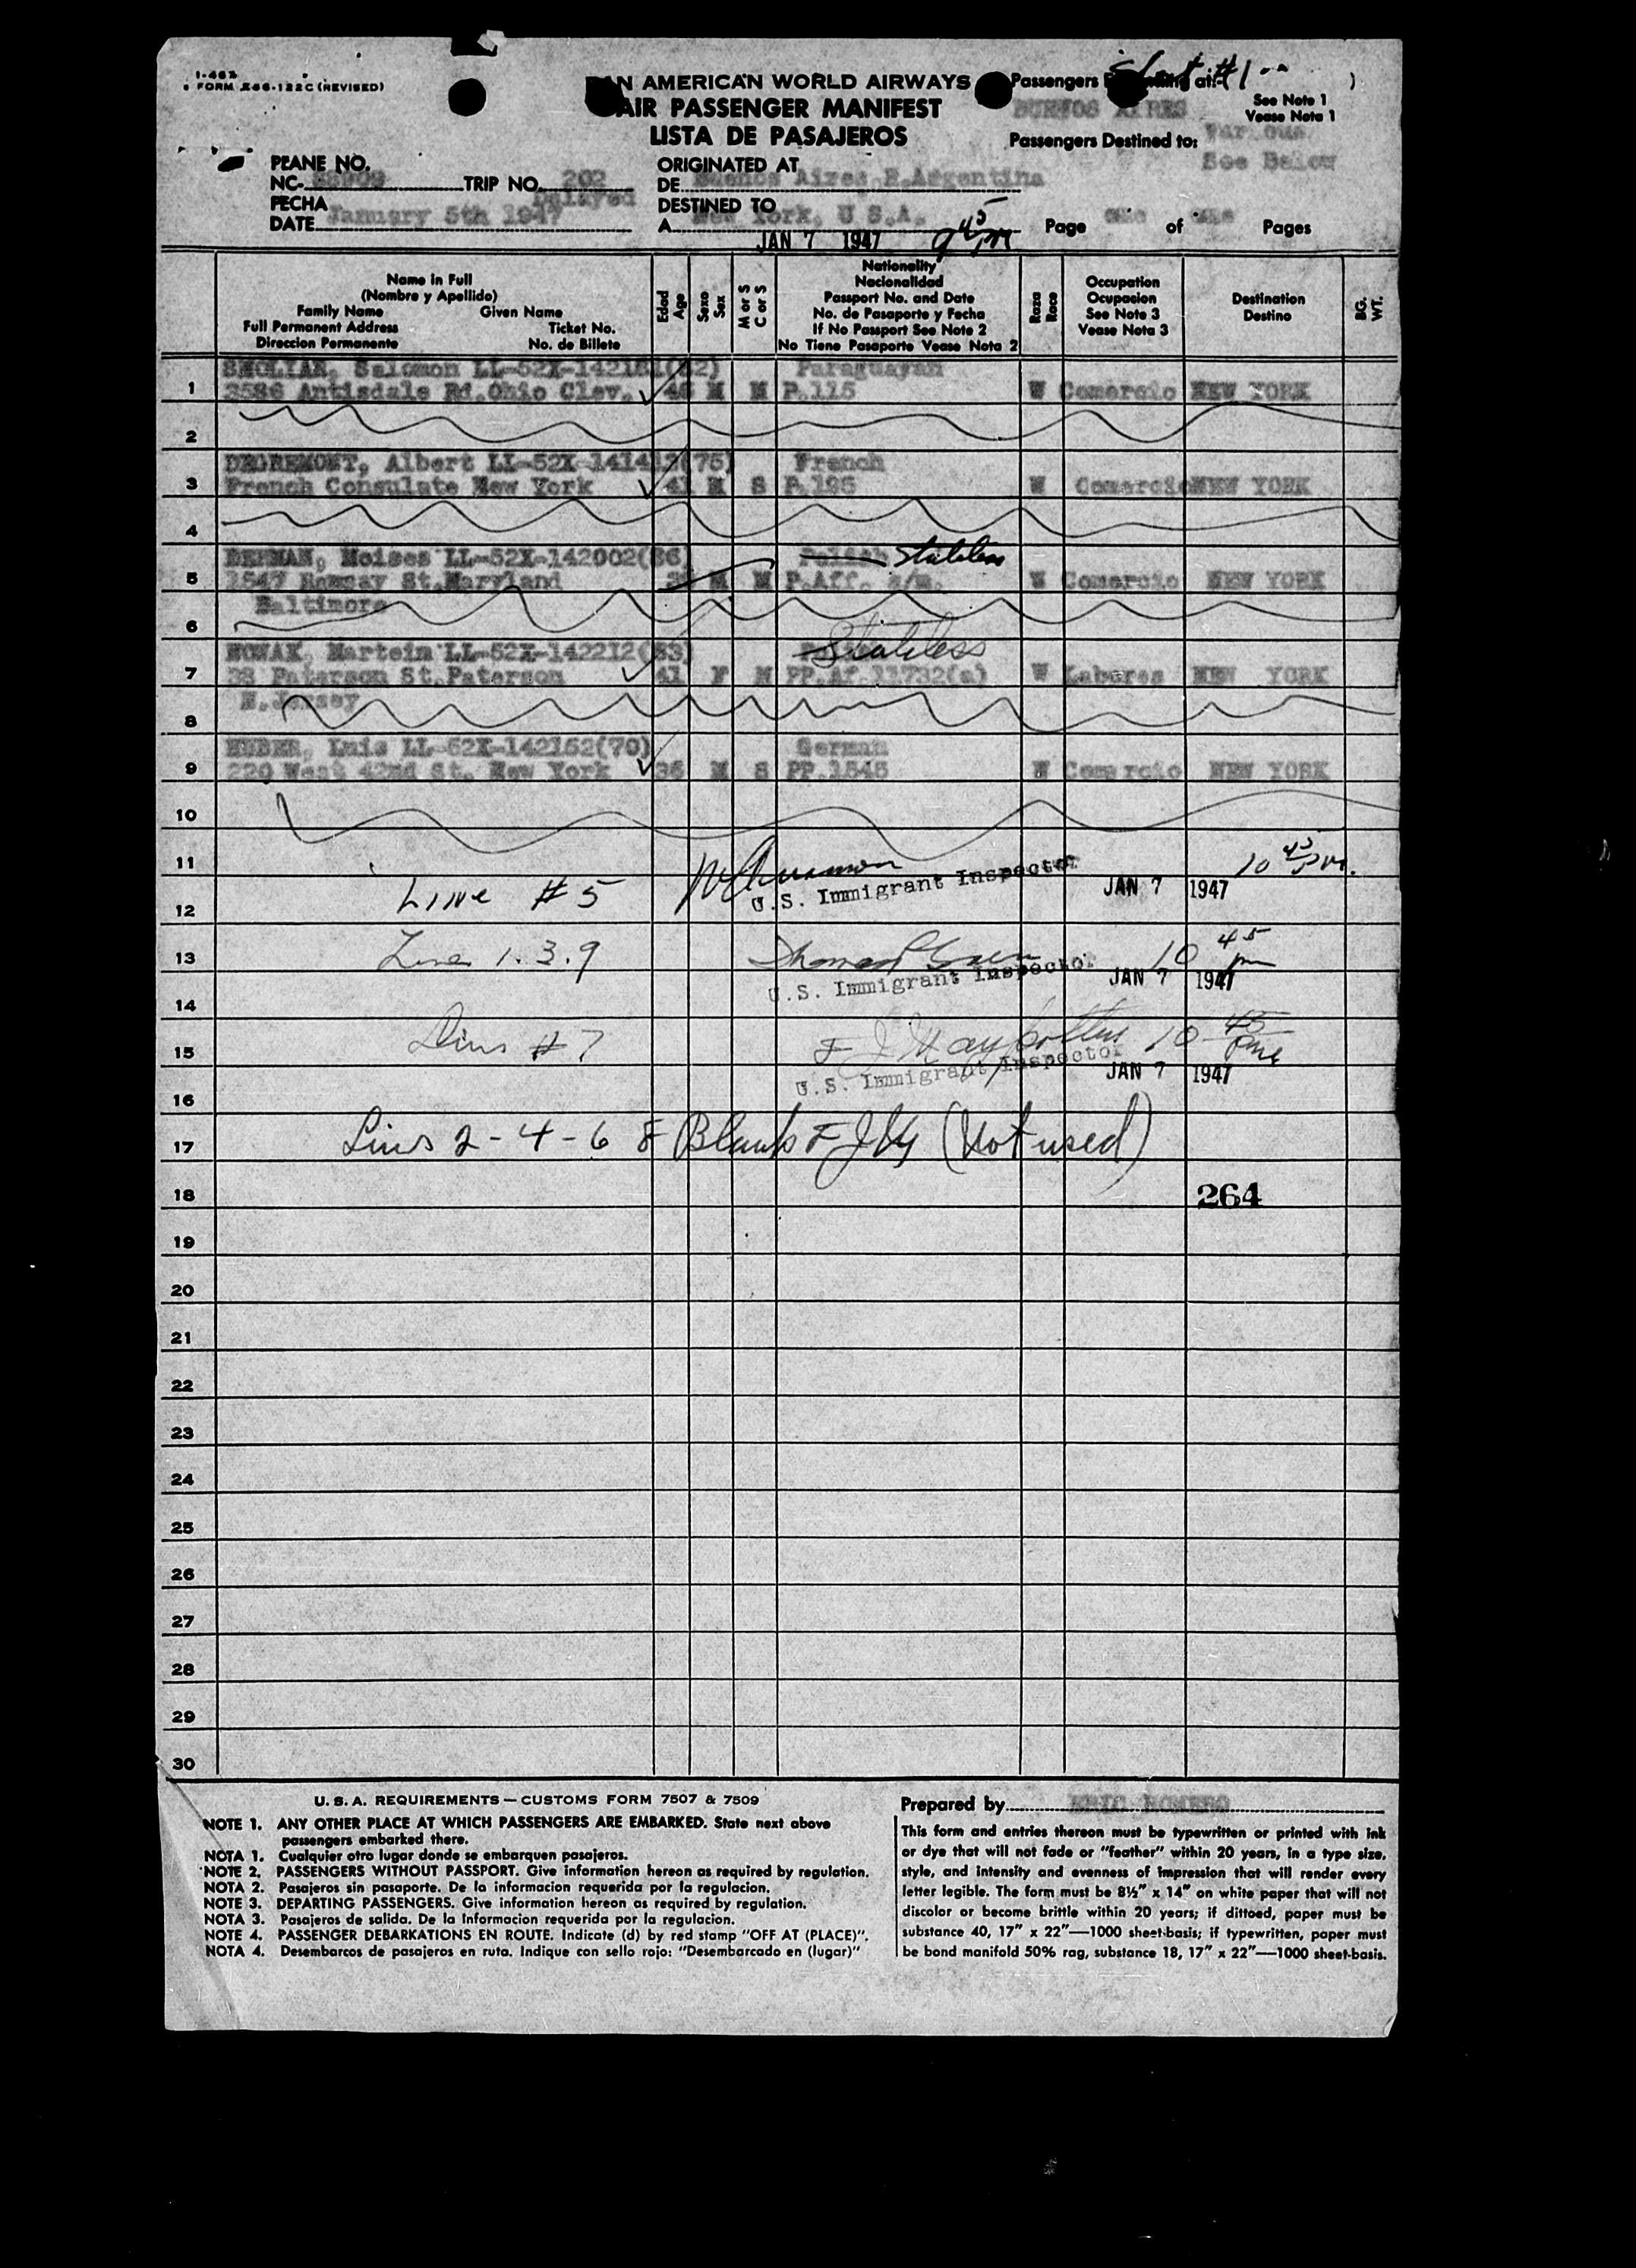 I-466
FORM 266-122C (REVISED)
PAN AMERICAN WORLD AIRWAYS
AIR PASSENGER MANIFEST
LISTA DE PASAJEROS
Sheet #1
Passengers at:
BUENOS AIRES
See Note 1
Vease Nota 1
Passengers Destined to: Various
See Below
PLANE NO.
NC- TRIP NO. 202
Delayed
FECHA
DATE January 5th 1947
ORIGINATED AT
DE Buenos Aires R.Argentina
DESTINED TO
A New York, U S.A.
JAN 7 1947 9 45 PM
Page one of one Pages
Name in Full
(Nombre y Apellido)
Family Name Given Name
Full Permanent Address Ticket No.
Direccion Permanente No. de Billete
Edad
Age
Sexo
Sex
M or S
C or S
Nationality
Nacionalidad
Passport No. and Date
No. de Pasaporte y Fecha
If No Passport See Note 2
No Tiene Pasaporte Vease Nota 2
Raza
Race
Occupation
Ocupacion
See Note 3
Vease Nota 3
Destination
Destino
BG.
WT.
SMOLIAR, Salomon LL-52X-142181(82) Paraguayan
1 3586 Antisdale Rd.Ohio Clev. 46 M M P.115 W Comercio NEW YORK
2
DEGREMONT, Albert LL-52X-141413(75) French
3 French Consulate New York 41 M S P.195 W Comercio NEW YORK
4
BERMAN, Moises LL-52X-142002(86) Polish Stateless
5 1547 Ramsay St.Maryland M M P.Aff. s/n. W Comercio NEW YORK
Baltimore
6
NOWAK, Martein LL-52X-142212(83) Stateless
7 38 Paterson St.Paterson 41 F M PP.Af.11732(a) W Labores NEW YORK
N.Jersey
8
HUBER, Luis LL-52X-142152(70) German
9 220 West 42nd St. New York 36 M S PP.1545 W Comercio NEW YORK
10
11 10 45 PM.
12 Line #5 U.S. Immigrant Inspector JAN 7 1947
13 Lines 1.3.9 10 45 pm
U.S. Immigrant Inspector JAN 7 1947
14
15 Line #7 10 45 pm
U.S. Immigrant Inspector JAN 7 1947
16
17 Lines 2-4-6 8 Blank FJH (Not used)
18 264
19
20
21
22
23
24
25
26
27
28
29
30
U.S.A. REQUIREMENTS—CUSTOMS FORM 7507 & 7509
NOTE 1. ANY OTHER PLACE AT WHICH PASSENGERS ARE EMBARKED. State next above
passengers embarked there.
NOTA 1. Cualquier otro lugar donde se embarquen pasajeros.
NOTE 2. PASSENGERS WITHOUT PASSPORT. Give information hereon as required by regulation.
NOTA 2. Pasajeros sin pasaporte. De la informacion requerida por la regulacion.
NOTE 3. DEPARTING PASSENGERS. Give information hereon as required by regulation.
NOTA 3. Pasajeros de salida. De la Informacion requerida por la regulacion.
NOTE 4. PASSENGER DEBARKATIONS EN ROUTE. Indicate (d) by red stamp "OFF AT (PLACE)".
NOTA 4. Desembarcos de pasajeros en ruta. Indique con sello rojo: "Desembarcado en (lugar)"
Prepared by ERIC ROMERO
This form and entries thereon must be typewritten or printed with ink
or dye that will not fade or "feather" within 20 years, in a type size,
style, and intensity and evenness of impression that will render every
letter legible. The form must be 8½" x 14" on white paper that will not
discolor or become brittle within 20 years; if dittoed, paper must be
substance 40, 17" x 22"—1000 sheet-basis; if typewritten, paper must
be bond manifold 50% rag, substance 18, 17" x 22"—1000 sheet-basis.